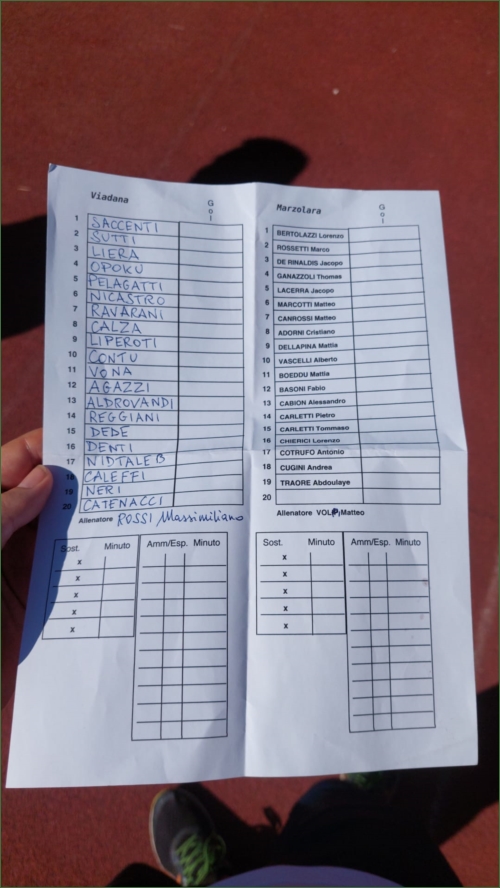 Viadana
Gol
1 SACCENTI
2 SUTTI
3 LIERA
4 OPOKU
5 PELAGATTI
6 NICASTRO
7 RAVARANI
8 CALZA
9 LIPEROTI
10 CONTU
11 VONA
12 AGAZZI
13 ALDROVANDI
14 REGGIANI
15 DEDE
16 DENTI
17 NIDTALEB
18 CALEFFI
19 NERI
20 CATENACCI
Allenatore ROSSI Massimiliano
Sost. Minuto
x
x
x
x
x
Amm/Esp. Minuto
Marzolara
Gol
1 BERTOLAZZI Lorenzo
2 ROSSETTI Marco
3 DE RINALDIS Jacopo
4 GANAZZOLI Thomas
5 LACERRA Jacopo
6 MARCOTTI Matteo
7 CANROSSI Matteo
8 ADORNI Cristiano
9 DELLAPINA Mattia
10 VASCELLI Alberto
11 BOEDDU Mattia
12 BASONI Fabio
13 CABION Alessandro
14 CARLETTI Pietro
15 CARLETTI Tommaso
16 CHIERICI Lorenzo
17 COTRUFO Antonio
18 CUGINI Andrea
19 TRAORE Abdoulaye
20
Allenatore VOLPI Matteo
Sost. Minuto
x
x
x
x
x
Amm/Esp. Minuto